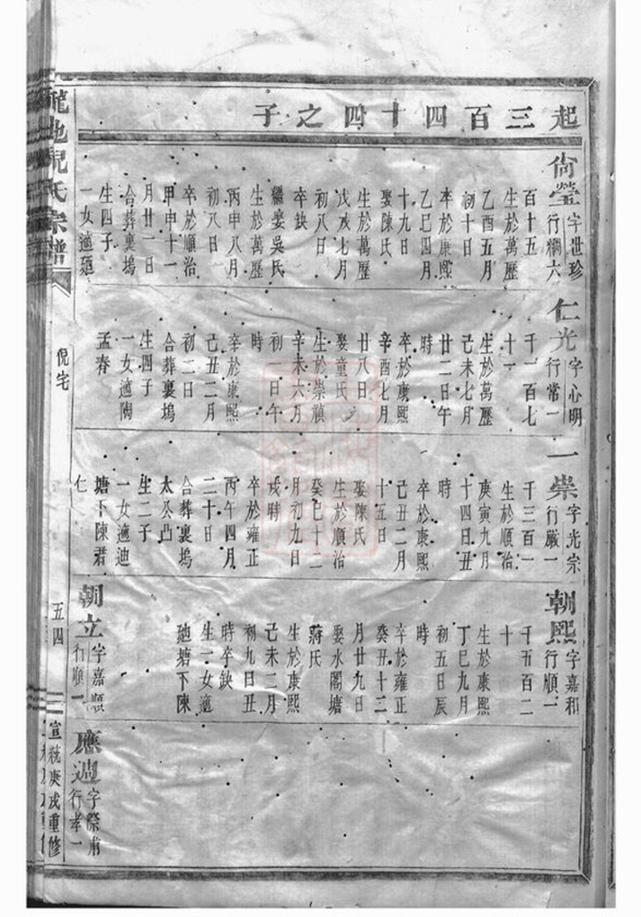 起三百四十四之子
尙瑩
字世珍
行棡六
百十五
生於萬歷
乙酉五月
初十日
卒於康熙
乙巳四月
十九日
娶陳氏
生於萬歷
戊戌七月
初八日
卒缺
繼娶吳氏
生於萬歷
丙申八月
初八日
卒於順治
甲申十一
月廿一日
合葬裏塢
生四子
一女適
仁光
字心明
行常一
千一百七
十一
生於萬歷
己未七月
廿二日午
時
卒於康熙
辛酉七月
廿八日
娶童氏
生於崇禎
辛未六月
初一日午
時
卒於康熙
己丑二月
初二日
合葬裏塢
生四子
一女適陶
孟春
一崇
字光宗
行嚴一
千三百一
生於順治
庚寅九月
十四日丑
時
卒於康熙
己丑二月
十五日
娶陳氏
生於順治
癸巳十二
月初九日
戌時
卒於雍正
丙午四月
二十日
合葬裏塢
太公凸
生二子
一女適迪
塘下陳君
仁
朝熙
字嘉和
行順一
千五百二
十
生於康熙
丁巳九月
初五日辰
時
卒於雍正
癸丑十二
月廿九日
娶水閣塘
蔣氏
生於康熙
己未二月
初九日丑
時卒缺
生一女適
塘下陳
朝立
字嘉順
行順一
應週
字際甫
行孝一
龍池倪氏宗譜
倪宅
五四
宣統庚戌重修